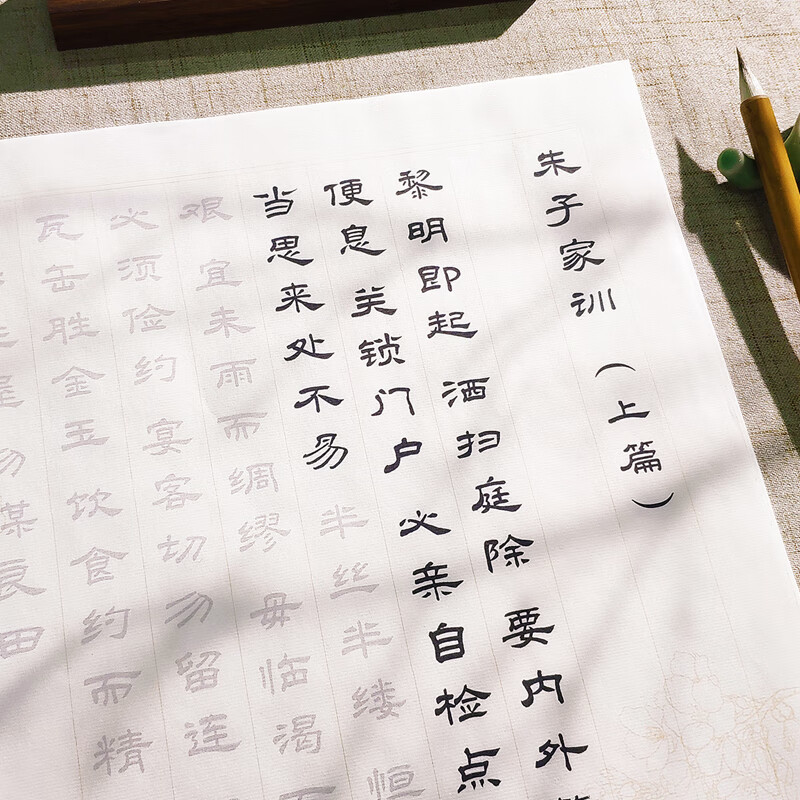 朱子家训（上篇）
黎明即起 洒扫庭除 要内外
便息 关锁门户 必亲自检点
当思来处不易 半丝半缕 恒
艰 宜未雨而绸缪 毋临渴而
必须俭约 宴客切勿留连
瓦缶胜金玉 饮食约而精
屋 勿谋良田